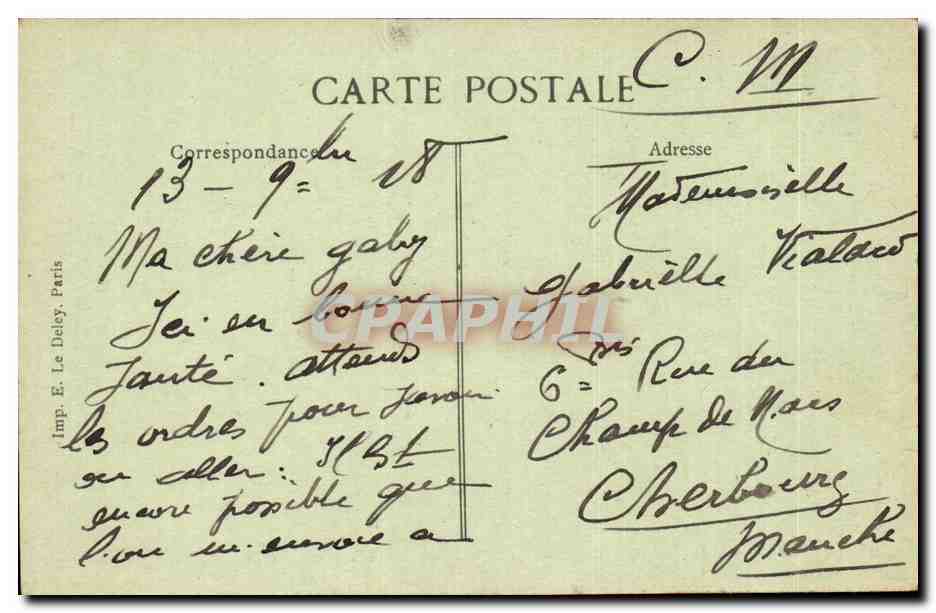 C. M
CARTE POSTALE
Correspondance
Adresse
13 - 9bre 18
Ma chère gaby
Ici en bonne
Santé. attends
les ordres pour savoir
ou aller. Il est
encore possible que
l'on m'envoie a
Mademoiselle
Gabrielle Vialard
6 bis Rue du
Champ de Mars
Cherbourg
Manche
Imp. E. Le Deley, Paris
CPAPHIL